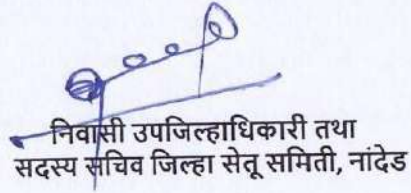 निवासी उपजिल्हाधिकारी तथा
सदस्य सचिव जिल्हा सेतू समिती, नांदेड